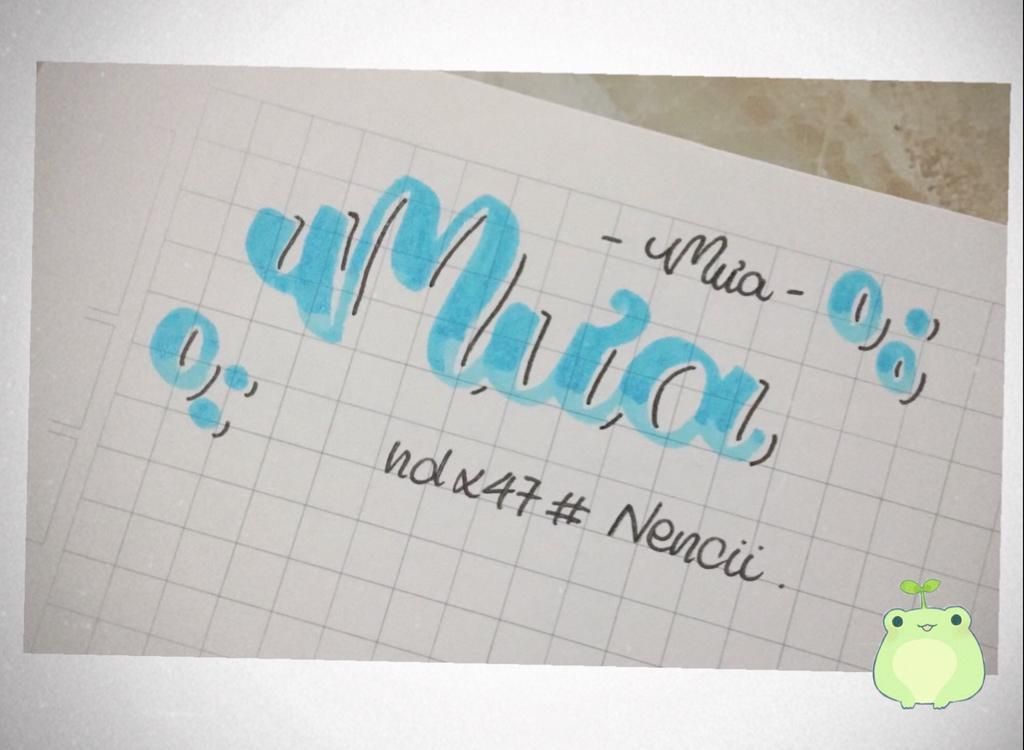 - Mia -
Mia
ndx47# Nencii.